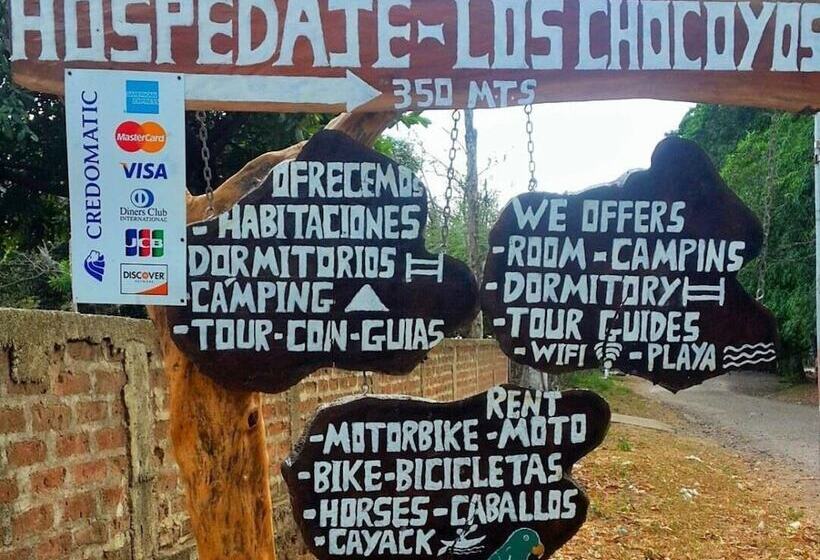 HOSPEDAJE-LOS CHOCOYOS
350 MTS
CREDOMATIC
AMERICAN EXPRESS
MasterCard
VISA
Diners Club
INTERNATIONAL
JCB
DISCOVER
NETWORK
OFRECEMOS
- HABITACIONES
DORMITORIOS
CAMPING
-TOUR-CON-GUIAS
WE OFFERS
-ROOM-CAMPINS
-DORMITORY
-TOUR GUIDES
-WIFI -PLAYA
RENT
-MOTORBIKE-MOTO
-BIKE-BICICLETAS
-HORSES-CABALLOS
-CAYACK